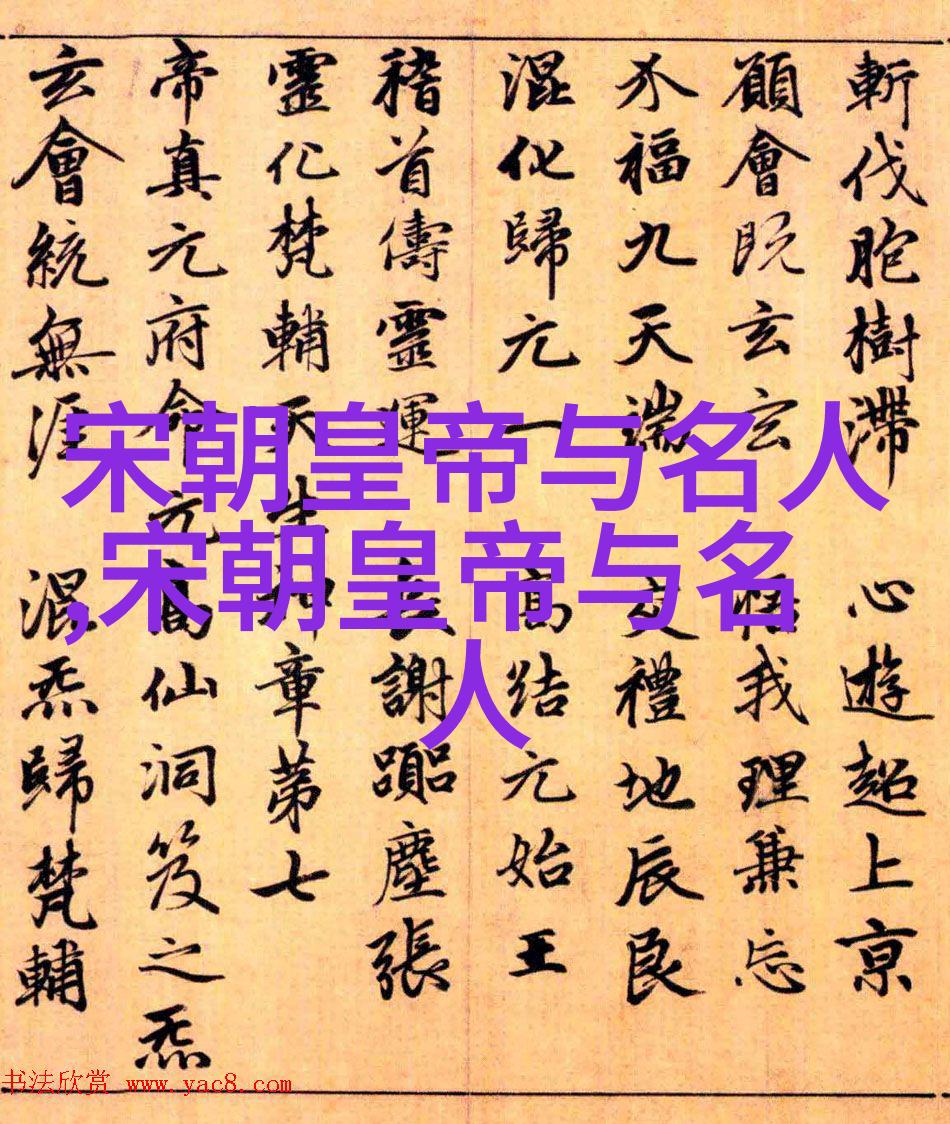 宋朝皇帝与名人
,宋朝皇帝与名
人
斬伐胞樹滯 心遊超上京
願會既玄玄 悟我理兼忘
介福九天端 交禮地辰良
混化歸元一 高結元始王
稽首儔靈運 謝躡塵張
靈化梵輔天生神章第七
帝真元府命元高仙洞笈之炁
玄會統無涯 混炁歸梵輔
书法欣赏 www.yac8.com